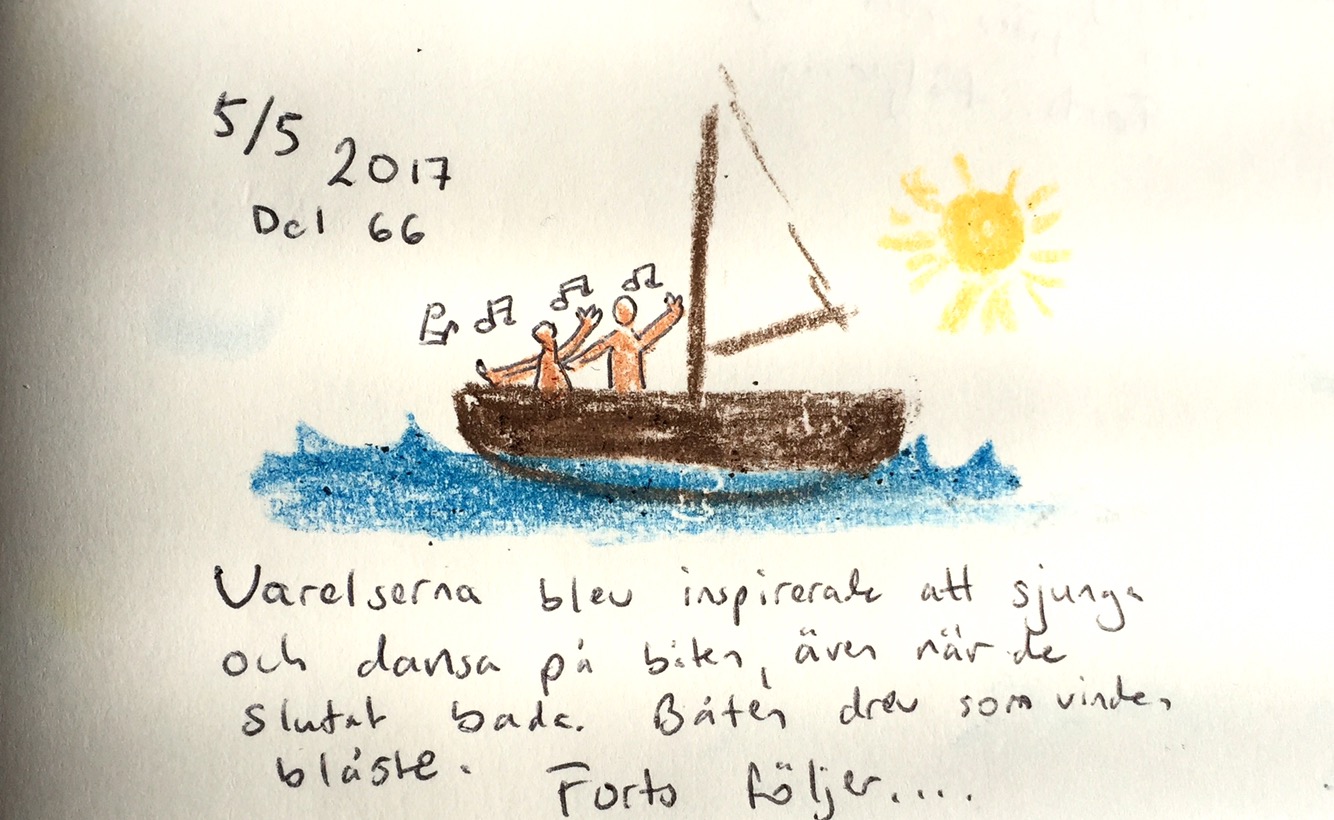 5/5 2017
Del 66
Varelserna blev inspirerade att sjunga
och dansa på båten, även när de
slutat bada. Båten drev som vinden
blåste. Forts följer....